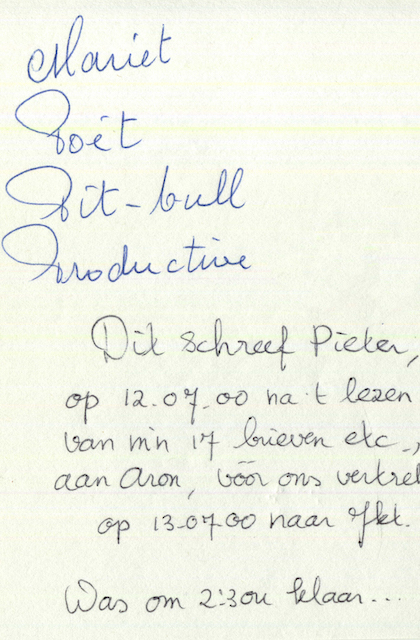 Mariet
Poët
Pit-bull
Productive
Dit schreef Pieter,
op 12.07.00 na 't lezen
van m'n 17 brieven etc.,
aan Aron, vóór ons vertrek
op 13.07.00 naar
Was om 2:30u klaar...